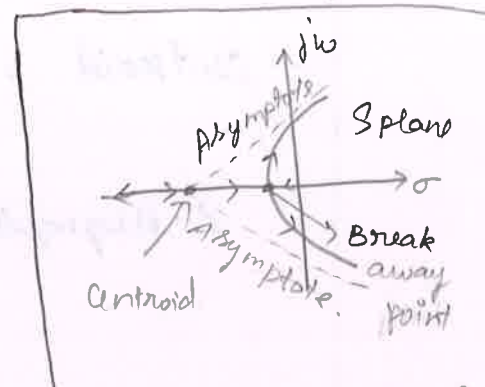 jω
Asymptote
S plane
σ
Break
away
point
Asymptote.
Centroid